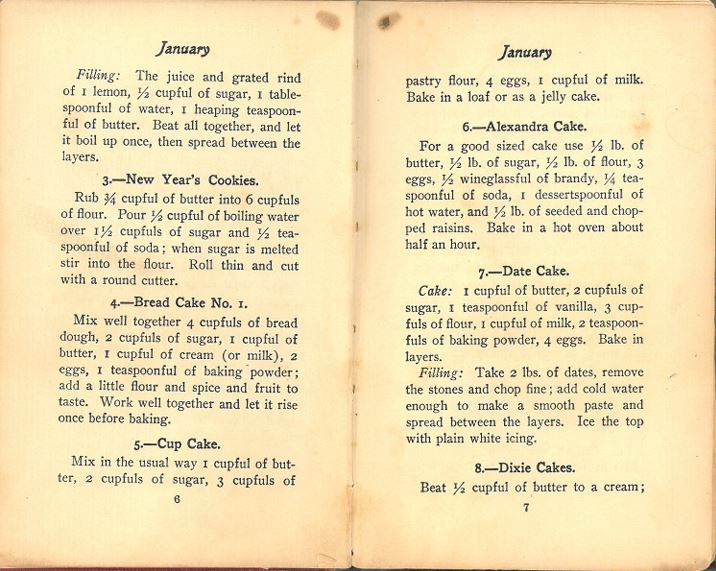 January
Filling: The juice and grated rind
of 1 lemon, ½ cupful of sugar, 1 table-
spoonful of water, 1 heaping teaspoon-
ful of butter. Beat all together, and let
it boil up once, then spread between the
layers.
3.—New Year's Cookies.
Rub ¾ cupful of butter into 6 cupfuls
of flour. Pour ½ cupful of boiling water
over 1½ cupfuls of sugar and ½ tea-
spoonful of soda; when sugar is melted
stir into the flour. Roll thin and cut
with a round cutter.
4.—Bread Cake No. 1.
Mix well together 4 cupfuls of bread
dough, 2 cupfuls of sugar, 1 cupful of
butter, 1 cupful of cream (or milk), 2
eggs, 1 teaspoonful of baking powder;
add a little flour and spice and fruit to
taste. Work well together and let it rise
once before baking.
5.—Cup Cake.
Mix in the usual way 1 cupful of but-
ter, 2 cupfuls of sugar, 3 cupfuls of
6
January
pastry flour, 4 eggs, 1 cupful of milk.
Bake in a loaf or as a jelly cake.
6.—Alexandra Cake.
For a good sized cake use ½ lb. of
butter, ½ lb. of sugar, ½ lb. of flour, 3
eggs, ½ wineglassful of brandy, ¼ tea-
spoonful of soda, 1 dessertspoonful of
hot water, and ½ lb. of seeded and chop-
ped raisins. Bake in a hot oven about
half an hour.
7.—Date Cake.
Cake: 1 cupful of butter, 2 cupfuls of
sugar, 1 teaspoonful of vanilla, 3 cup-
fuls of flour, 1 cupful of milk, 2 teaspoon-
fuls of baking powder, 4 eggs. Bake in
layers.
Filling: Take 2 lbs. of dates, remove
the stones and chop fine; add cold water
enough to make a smooth paste and
spread between the layers. Ice the top
with plain white icing.
8.—Dixie Cakes.
Beat ½ cupful of butter to a cream;
7